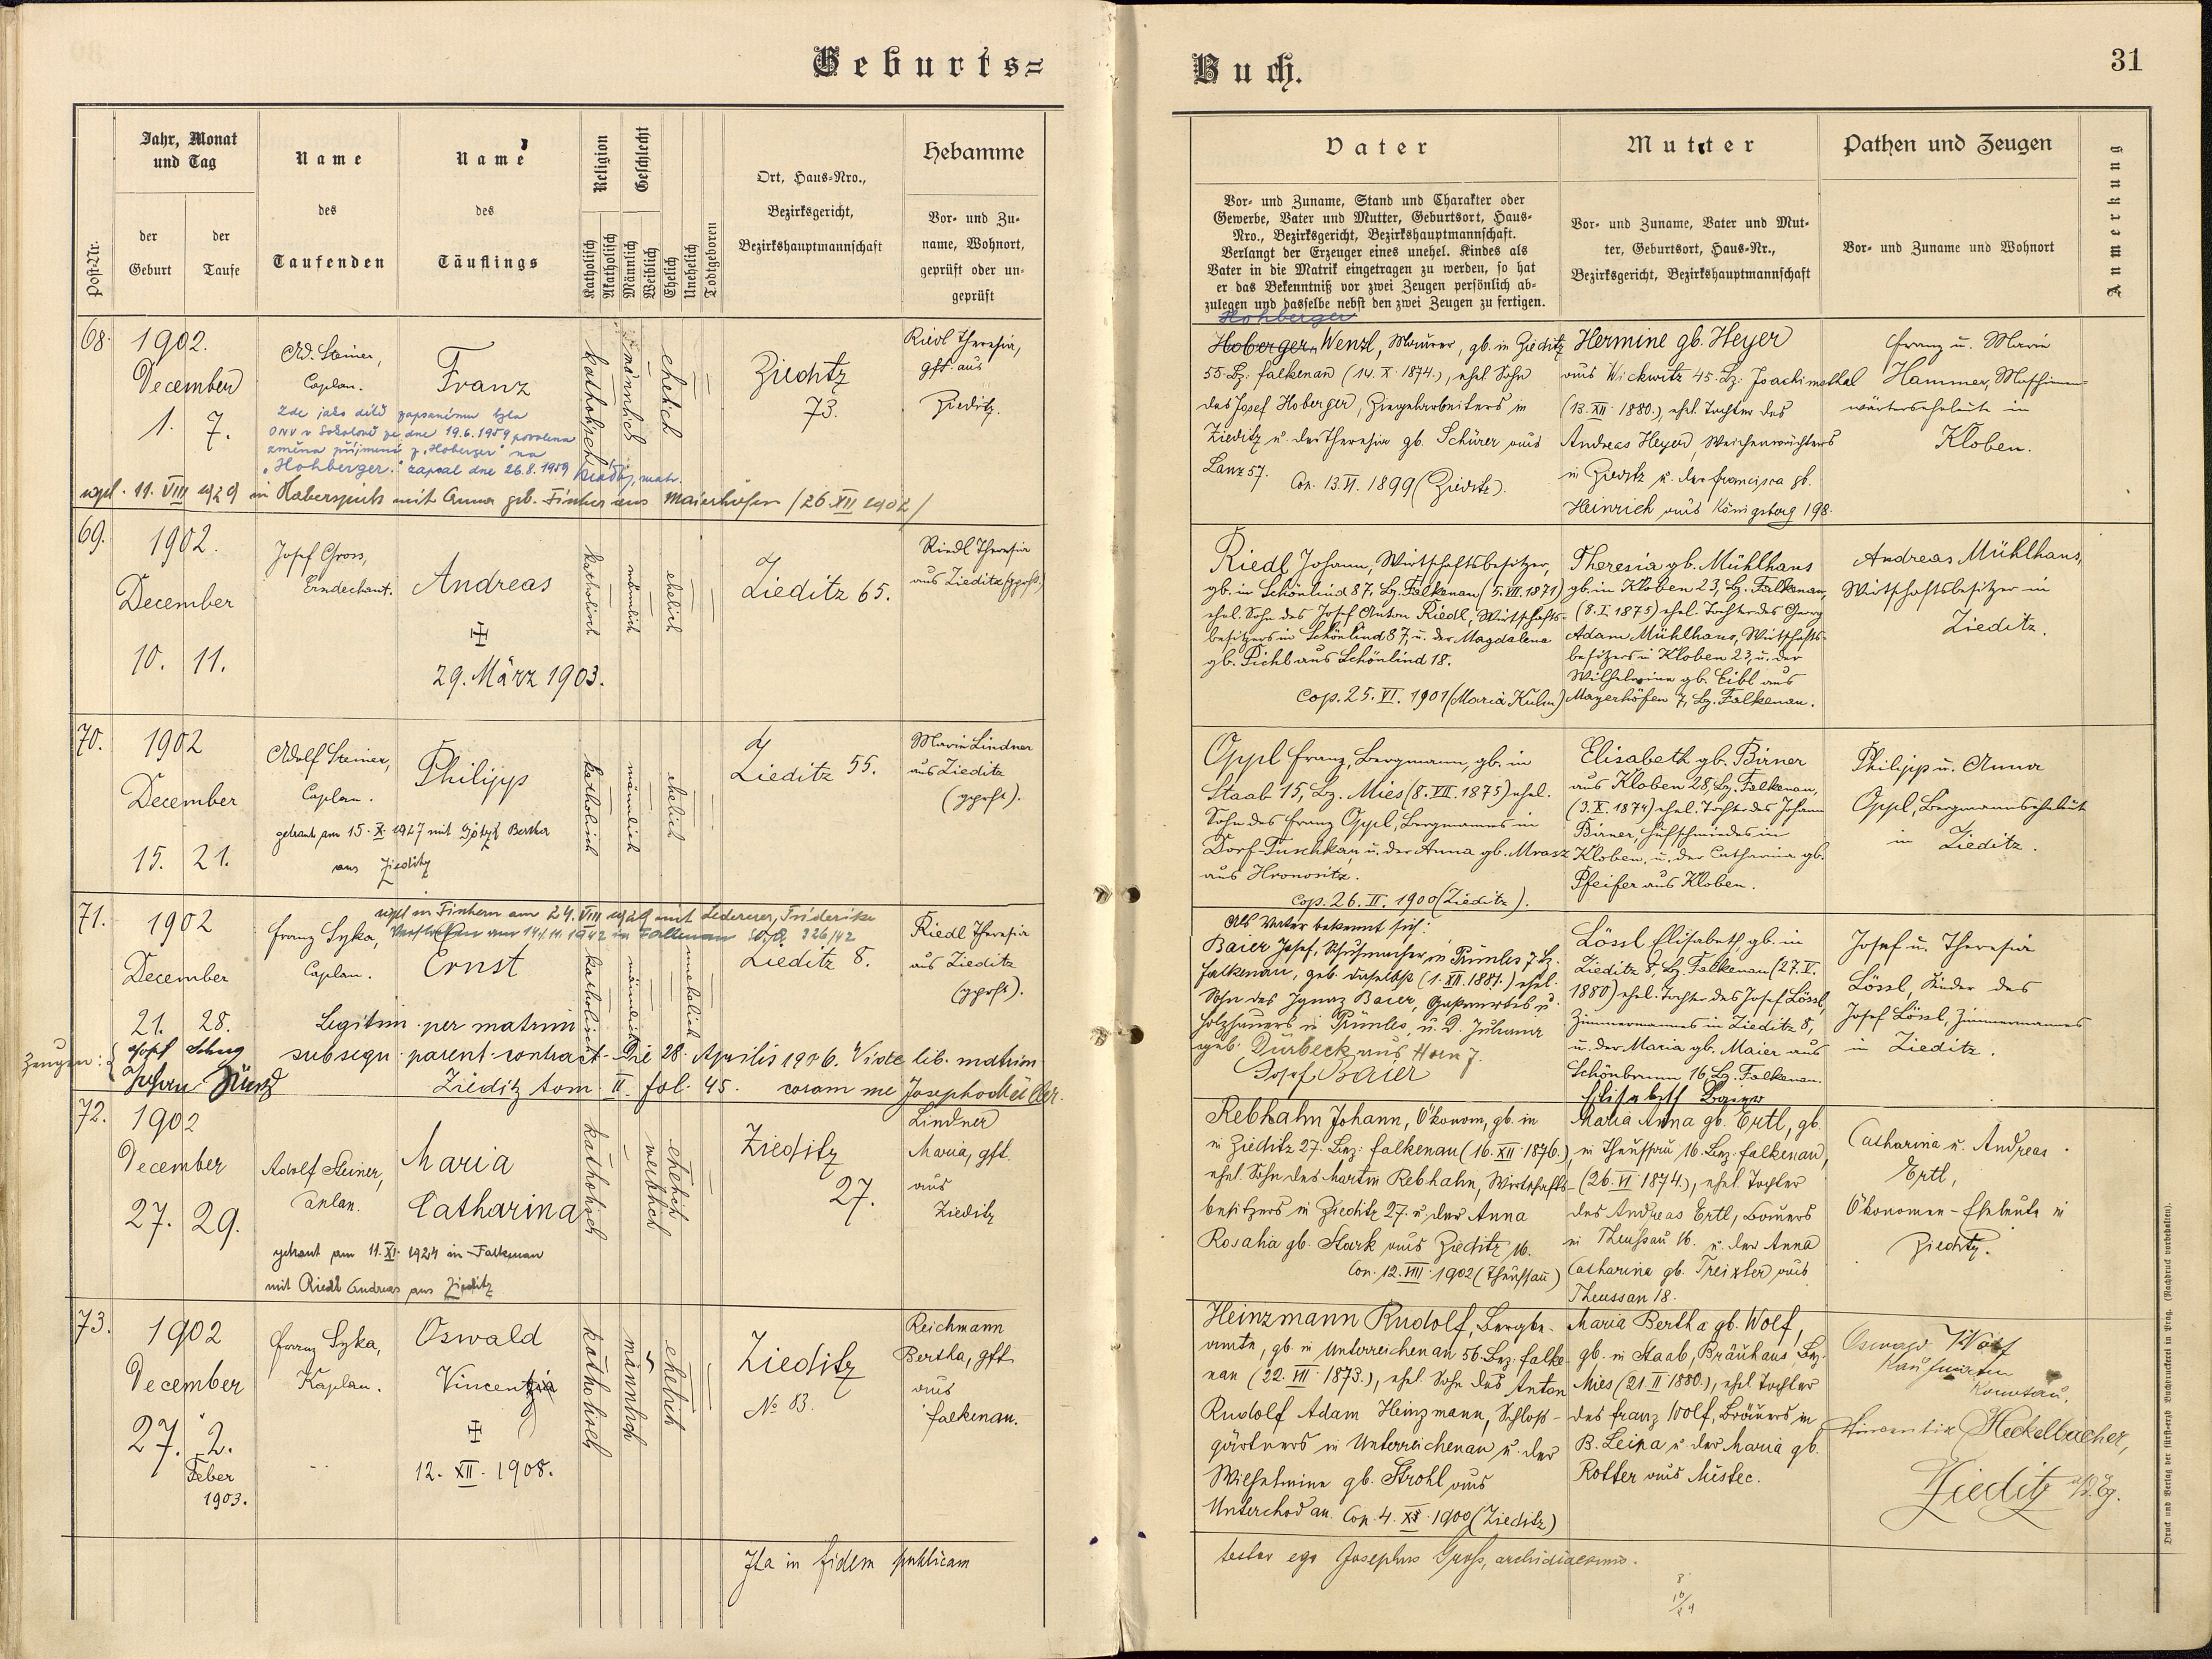 Geburts=
Buch.
31
Post-Nr.
Jahr, Monat
und Tag
der
Geburt
der
Taufe
Name
des
Taufenden
Name
des
Täuflings
Religion
Katholisch
Akatholisch
Geschlecht
Männlich
Weiblich
Ehelich
Unehelich
Todtgeboren
Ort, Haus=Nro.,
Bezirksgericht,
Bezirkshauptmannschaft
Hebamme
Vor= und Zu=
name, Wohnort,
geprüft oder un=
geprüft
Vater
Vor= und Zuname, Stand und Charakter oder
Gewerbe, Vater und Mutter, Geburtsort, Haus=
Nro., Bezirksgericht, Bezirkshauptmannschaft.
Verlangt der Erzeuger eines unehel. Kindes als
Vater in die Matrik eingetragen zu werden, so hat
er das Bekenntniß vor zwei Zeugen persönlich ab=
zulegen und dasselbe nebst den zwei Zeugen zu fertigen.
Mutter
Vor= und Zuname, Vater und Mut=
ter, Geburtsort, Haus=Nr.,
Bezirksgericht, Bezirkshauptmannschaft
Pathen und Zeugen
Vor= und Zuname und Wohnort
Anmerkung
68.
1902.
December
1. 7.
Ad. Steiner,
Caplan.
Franz
Zde jako dítě zapsanému byla
ONV v Sokolově ze dne 19.6.1959 povolena
změna příjmení z „Hoberger" na
„Hohberger." zapsal dne 26.8.1959
katholisch
männlich
ehelich
Zieditz
73.
Riedl Theresia,
gft. aus
Zieditz.
11. VIII 1929 in Haberspirk mit Anna geb. Fischer aus Maierhöfen /26.XII 1902/
Hohberger
Hoberger Wenzl, Maurer, gb. in Zieditz
55. Bz. Falkenau (14. X. 1874.), ehel. Sohn
des Josef Hoberger, Ziegelarbeiters in
Zieditz u. der Theresia gb. Schürer aus
Lanz 57.
Cop. 13. VI. 1899 (Zieditz).
Hermine gb. Heyer
aus Wickwitz 45. Bz. Joachimsthal
(13. XII. 1880.), ehel. Tochter des
Andreas Heyer, Weichenwächters
in Zieditz u. der Francisca gb.
Heinrich aus Königsberg 198.
Franz u. Marie
Hammer, Maschinen=
wärterseheleute in
Kloben.
69.
1902.
December
10. 11.
Josef Gross,
Erzdechant.
Andreas
29. März 1903.
katholisch
männlich
ehelich
Zieditz 65.
Riedl Theresia
aus Zieditz (gprft.)
Riedl Johann, Wirtschaftsbesitzer,
gb. in Schönlind 87, Bz. Falkenau (5. VII. 1871)
ehel. Sohn des Josef Anton Riedl, Wirtschafts-
besitzers in Schönlind 87, u. der Magdalena
gb. Pichl aus Schönlind 18.
Cop. 25. VI. 1901 (Maria Kulm)
Theresia gb. Mühlhans
gb. in Kloben 23, Bz. Falkenau,
(8. I. 1875) ehel. Tochter des Georg
Adam Mühlhans, Wirtschafts-
besitzers in Kloben 23, u. der
Wilhelmine gb. Eibl aus
Mayerhöfen 7, Bz. Falkenau.
Andreas Mühlhans,
Wirtschaftsbesitzer in
Zieditz.
70.
1902
December
15. 21.
Adolf Steiner,
Caplan.
Philipp
getraut am 15. X. 1927 mit Götzl Bertha
aus Zieditz
katholisch
männlich
ehelich
Zieditz 55.
Marie Lindner
aus Zieditz
(gprft).
Oppl Franz, Bergmann, gb. in
Staab 15, Bz. Mies (8. VII. 1875) ehel.
Sohn des Franz Oppl, Bergmannes in
Dorf-Tuschkau, u. der Anna gb. Mrasz
aus Hronositz.
Cop. 26. II. 1900 (Zieditz).
Elisabeth gb. Birner
aus Kloben 28, Bz. Falkenau,
(3. X. 1874) ehel. Tochter des Johann
Birner, Hufschmiedes in
Kloben, u. der Catharina gb.
Pfeifer aus Kloben.
Philipp u. Anna
Oppl, Bergmannseheleute
in Zieditz.
71.
1902
December
21. 28.
Franz Syka,
Caplan.
in Zinkern am 24. VIII 1929 mit Lederer, Friderike
Verstorben am 14.11.1942 in Falkenau 326/42
Ernst
katholisch
männlich
unehelich
Zieditz 8.
Riedl Theresia
aus Zieditz
(gprft).
Legitim. per matrim.
subsequ. parent. contract. Die 28. Aprilis 1906. Vide lib. matrim.
Zieditz tom. II. fol. 45. coram me Josepho
Zeugen:
Josef
Johann
Als Vater bekennt sich:
Baier Josef, Schuhmacher in Prünles 7. Bz.
Falkenau, geb. daselbst (1. XII. 1881.) ehel.
Sohn des Ignaz Baier, Gastwirtes u.
Holzhauers in Prünles, u. d. Juliana
geb. Durbeck aus Horn 7.
Josef Baier
Lössl Elisabeth, gb. in
Zieditz 8, Bz. Falkenau (27. V.
1880) ehel. Tochter des Josef Lössl,
Zimmermannes in Zieditz 8,
u. der Maria gb. Maier aus
Schönbrunn 16, Bz. Falkenau.
Elisabeth Baier
Josef u. Theresia
Lössl, Kinder des
Josef Lössl, Zimmermannes
in Zieditz.
72.
1902
December
27. 29.
Adolf Steiner,
Caplan.
Maria
Catharina
getraut am 11. XI. 1924 in Falkenau
mit Riedl Andreas aus Zieditz
katholisch
weiblich
ehelich
Zieditz
27.
Lindner
Maria, gft.
aus
Zieditz
Rebhahn Johann, Ökonom, gb. in
in Zieditz 27. Bez: Falkenau (16. XII. 1876.),
ehel. Sohn des Martin Rebhahn, Wirtschafts-
besitzers in Zieditz 27. u. der Anna
Rosalia gb. Stark aus Zieditz 16.
Cop. 12. VIII. 1902 (Theussau)
Maria Anna gb. Ertl, gb.
in Theussau 16. Bez: Falkenau,
(26. VI 1874.), ehel. Tochter
des Andreas Ertl, Bauers
in Theussau 16. u. der Anna
Catharina gb. Treixler aus
Theussau 18.
Catharina u. Andreas
Ertl,
Ökonomen-Eheleute in
Zieditz.
73.
1902
December
27. 2.
Feber
1903.
Franz Syka,
Kaplan.
Oswald
Vincentia
12. XII. 1908.
katholisch
männlich
ehelich
Zieditz
№ 83.
Reichmann
Bertha, gft.
aus
Falkenau.
Heinzmann Rudolf, Bergbe-
amte, gb. in Unterreichenau 56. Bez: Falke-
nau (22. VII. 1873.), ehel. Sohn des Anton
Rudolf Adam Heinzmann, Schloß-
gärtners in Unterreichenau u. der
Wilhelmine gb. Strohl aus
Unterchodau. Cop. 4. XI. 1900 (Zieditz)
Maria Bertha gb. Wolf,
gb. in Staab, Bräuhaus, Bez.
Mies (21. II 1880.), ehel. Tochter
des Franz Wolf, Bräuers in
B. Leipa u. der Maria gb.
Rotter aus Mistec.
Oswald Wolf
Komotau,
Vincentia Heckelbacher,
Zieditz a/B. Eg.
Ita in fidem publicam
testor ego Josephus Gross, archidiaconus.
Druck und Verlag der fürsterzb. Buchdruckerei in Prag. (Nachdruck vorbehalten).